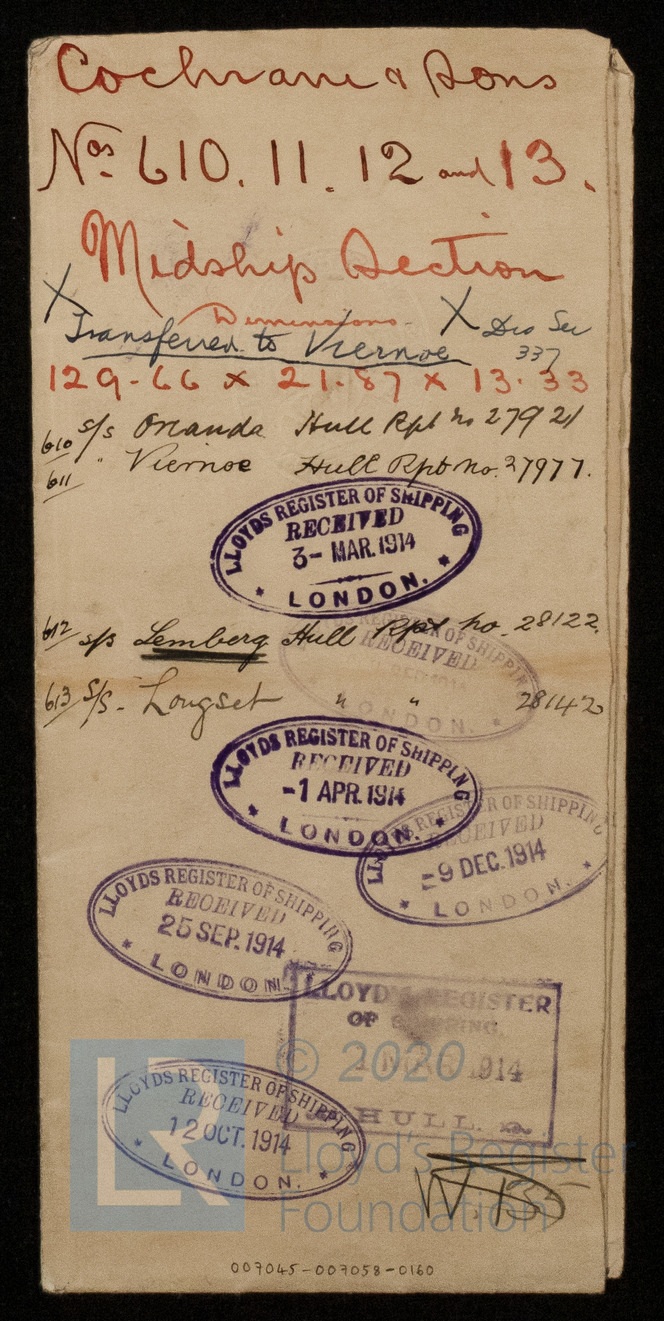 Cochrane & Sons
Nos. 610. 11. 12 and 13.
Midship Section
Dimensions
X Transferred to Viernoe X Dro Sec
337
129-66 x 21.87 x 13.33
610 s/s Oneanda Hull Rpt no 27921
611 " Viernoe Hull Rpt no. 27977.
LLOYDS REGISTER OF SHIPPING
RECEIVED
3- MAR. 1914
LONDON.
612 s/s Lemberg Hull Rpt no. 28122.
REGISTER OF SHIPPING
RECEIVED
LONDON.
613 s/s. Longset " " 28142
LLOYDS REGISTER OF SHIPPING
RECEIVED
-1 APR. 1914
LONDON.
LLOYDS REGISTER OF SHIPPING
RECEIVED
-9 DEC. 1914
LONDON.
LLOYDS REGISTER OF SHIPPING
RECEIVED
25 SEP. 1914
LONDON.
LLOYD'S REGISTER
OF SHIPPING.
1914
HULL.
© 2020
Lloyd's Register
Foundation
LR
LLOYDS REGISTER OF SHIPPING
RECEIVED
12 OCT. 1914
LONDON.
007045-007058-0160